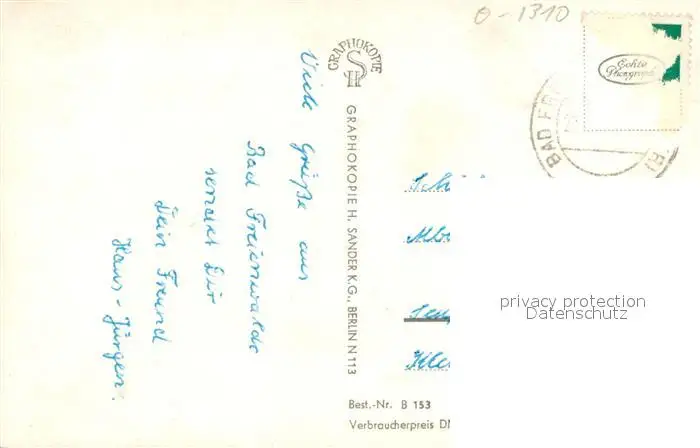 0-1310
GRAPHOKOPIE
H S
Echte
Photographie
BAD FR
Viele Grüße aus
Bad Freienwalde
sendet Dir
Dein Freund
Hans-Jürgen.
GRAPHOKOPIE H. SANDER K.G., BERLIN N 113
privacy protection
Datenschutz
Best.-Nr. B 153
Verbraucherpreis DM